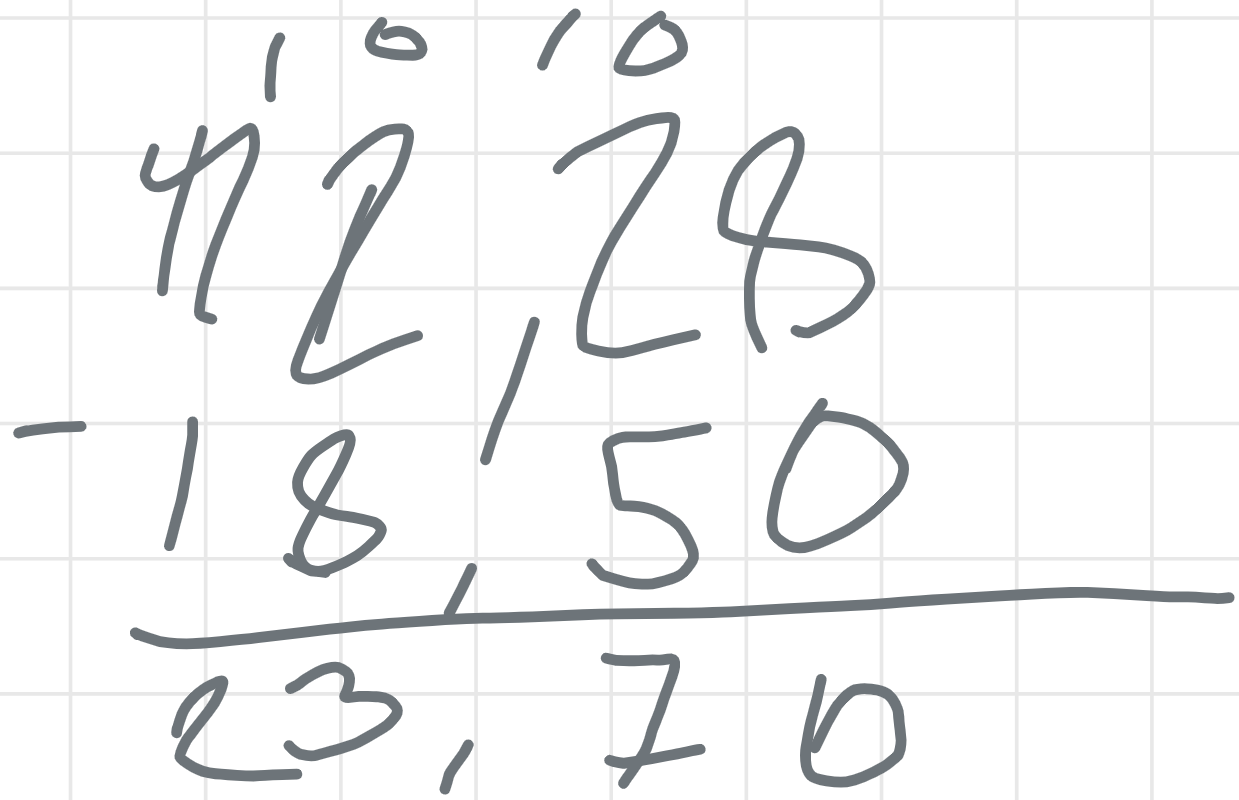 10 10
42,28
- 18,50
23,70